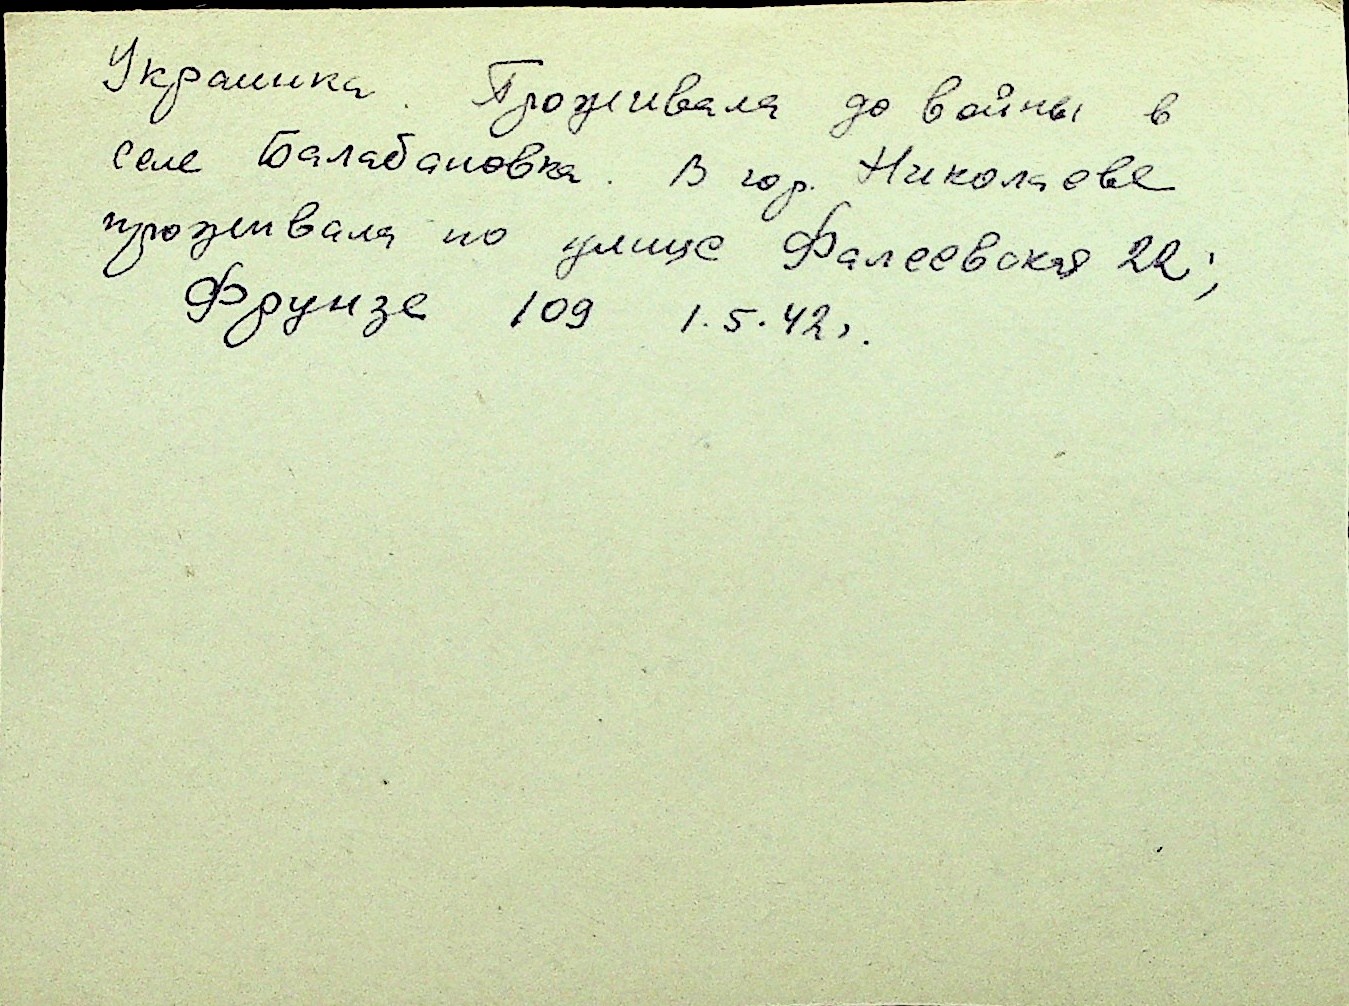 Украинка. Проживала до войны в
селе Балабановка. В гор. Николаеве
проживала по улице Фалеевская 22;
Фрунзе 109 1.5.42г.